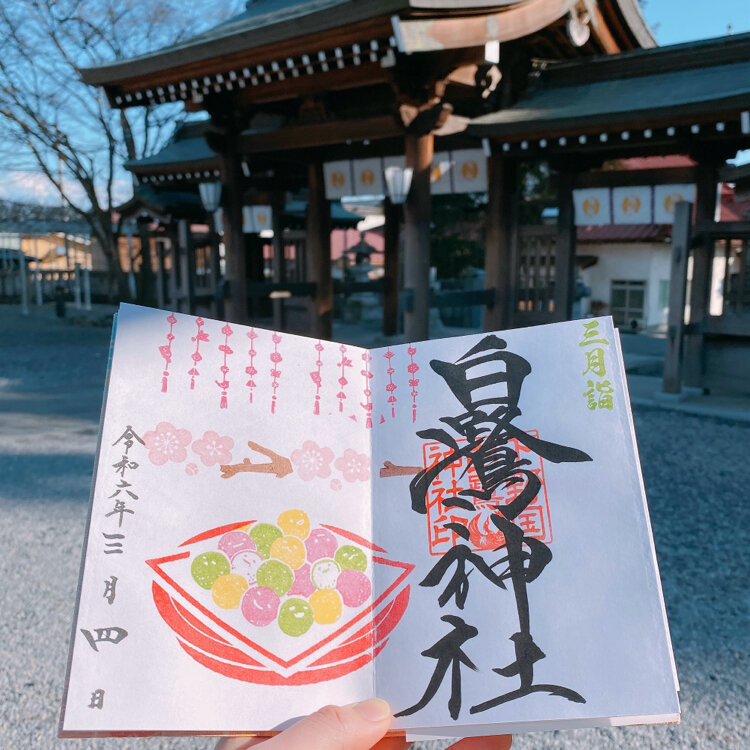 三月詣
白鷺神社
神社印
令和六年三月四日